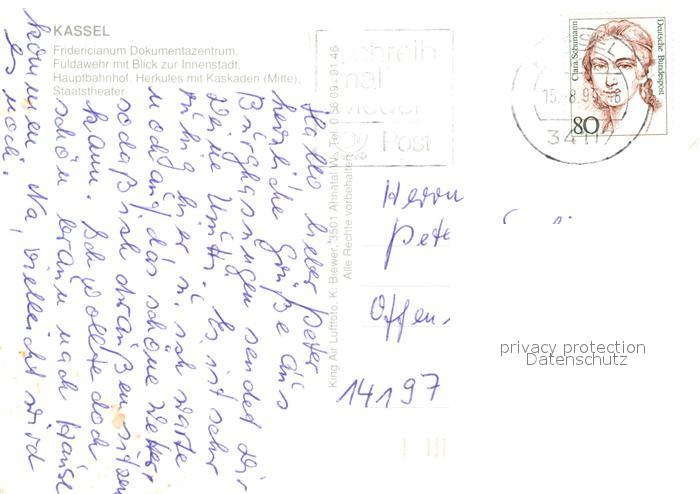 KASSEL
Fridericianum Dokumentazentrum,
Fuldawehr mit Blick zur Innenstadt,
Hauptbahnhof. Herkules mit Kaskaden (Mitte),
Staatstheater
Schreib
mal
wieder
Post
Clara Schumann
Deutsche Bundespost
80
King Air Luftfoto, K. Biewer, 3501 Ahnatal
Alle Rechte vorbehalten
Hallo lieber Peter
herzliche Grüße aus
Burghasungen sendet Dir
Deine Es ist sehr
ruhig hier u. ich warte
noch auf das schöne Wetter
sodaß ich draußen sitzen
kann. Ich wollte doch
schön braun nach Hause
kommen. Na, vielleicht wird
es noch.
Herrn
Pete
Offen
14197
privacy protection
Datenschutz